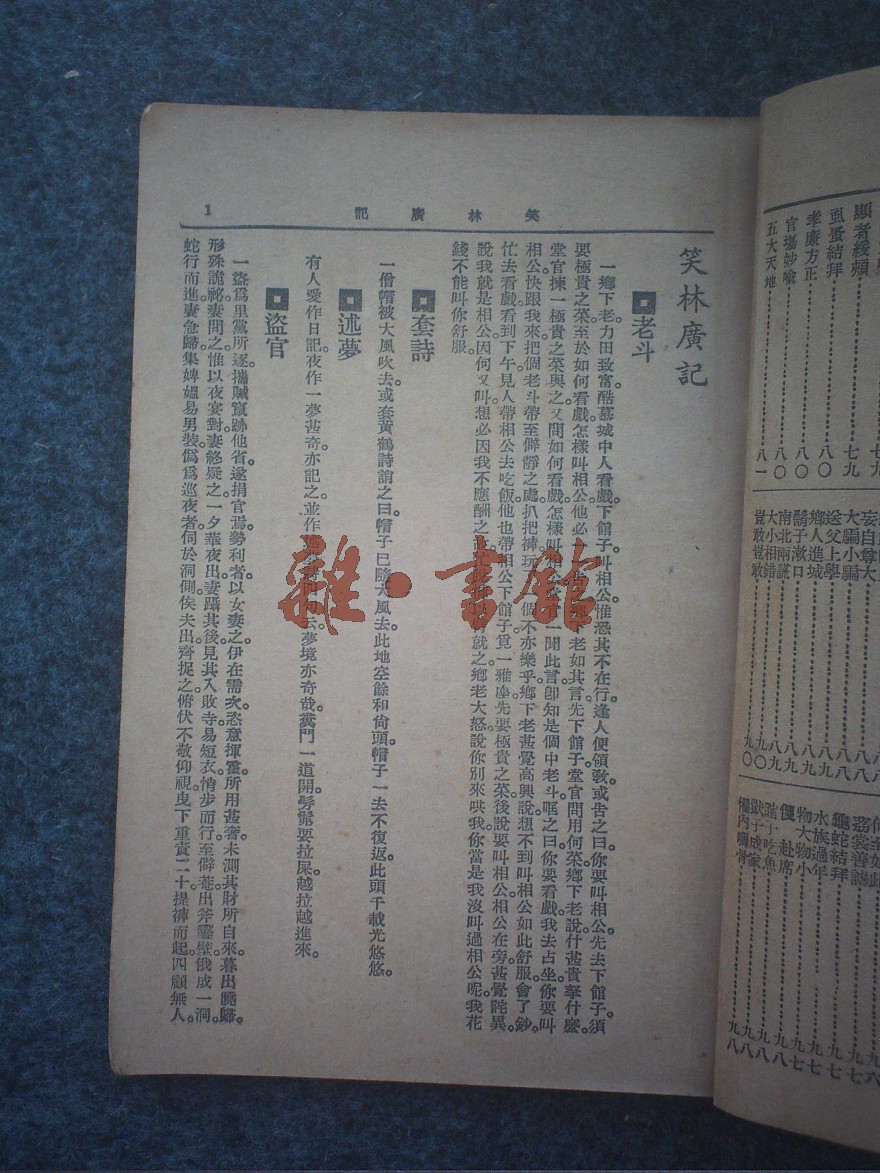 笑林廣記
1
笑林廣記
老斗
一鄉下老力田致富酷慕城中人看戲下館子叫相公惟恐其不在行逢人便領敎或告之曰你要叫相公先去下館子須
要極貴之菜至於如何看戲怎樣叫相公他必一
鄉下老如其言先下館子堂官問用何菜鄉下老說什甚貴拏什麽
堂官揀一極貴之菜與之又問如何看戲怎樣叫相公堂官一聞此言卽知是個中老斗嘔之曰你要看戲我去占坐你要叫
相公快跟我來把個老斗帶至僻靜之處扒把褲玩
個不亦樂乎鄉下老甚覺高興說想不到叫相公如此舒服會了鈔
忙去看戲看到下午見人帶相公去吃飯他也帶相公下館子覓一雅座先要極貴之菜後說要叫相公相公在旁甚覺詫異
說我就是相公因何又叫想必因我不應酬之故
就之鄉老大怒說你別來哄我你當是我沒叫過相公呢我花
錢不能叫你舒服
套詩
一僧帽被大風吹去或套黃鶴詩謂之曰帽子已隨大風去此地空餘和尙頭帽子一去不復返此頭千載光悠悠
述夢
有人愛作日記夜作一夢甚奇亦記之並作
去夢境亦奇哉
門一道開髣髴要拉屎越拉越進來
盜官
一盜爲里黨所逐攜贓竄跡他省遂捐官焉勢利者以女妻之伊在需次恣意揮霍所用甚奢未測其財所自來暮出曉歸
形殊詭祕妻問之惟以夜宴對妻終疑之一夕華夜出妻躡其後見其入敗寺易短衣悄步而行至僻菴出斧鑿壁俄成一洞
蛇行而進妻急歸集婢媼易男裝僞爲巡夜者伺於洞側俟夫出齊捉之俯伏不敬仰視曳下重責二十提褲而起四顧無人
雜·書館
顯者緩頰
七九
虱蚤結拜
八〇
孝廉方正
八〇
官塲妙喩
八〇
五大天地
八一
妄自尊大
八
大小騙
八
送父上學
八
鄉人進城
八九
鬍子漱口
八九
南北兩謊
八九
大小相錯
九〇
豈敢豈敢
九〇
龜蛇結拜
九七
水族過年
九七
物大物小
九七
儍赴席
九八
瞎子吃魚
九八
獃子成家
九八
懼內
九八